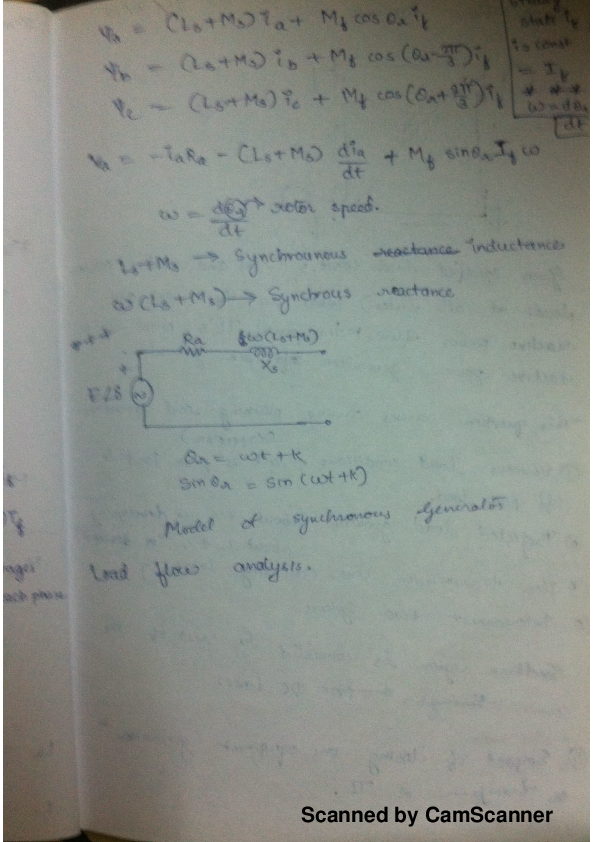 ψa = (Ls+Ms) ia + Mf cos θr if
ψb = (Ls+Ms) ib + Mf cos (θr-2π/3) if
ψc = (Ls+Ms) ic + Mf cos(θr+2π/3) if
state if
is const
= If
* * *
ω = dθr
dt
va = -iaRa - (Ls+Ms) dia/dt + Mf sinθr If ω
ω = dθr/dt → rotor speed.
Ls+Ms → Synchrounous reactance inductance
ω(Ls+Ms) → Synchrous reactance
***
Ra jω(Ls+Ms)
Xs
+
E∠δ
θr = ωt + k
sinθr = sin (ωt+k)
Model of synchronous Generator
Load flow analysis.
if
ages
each phase
Scanned by CamScanner